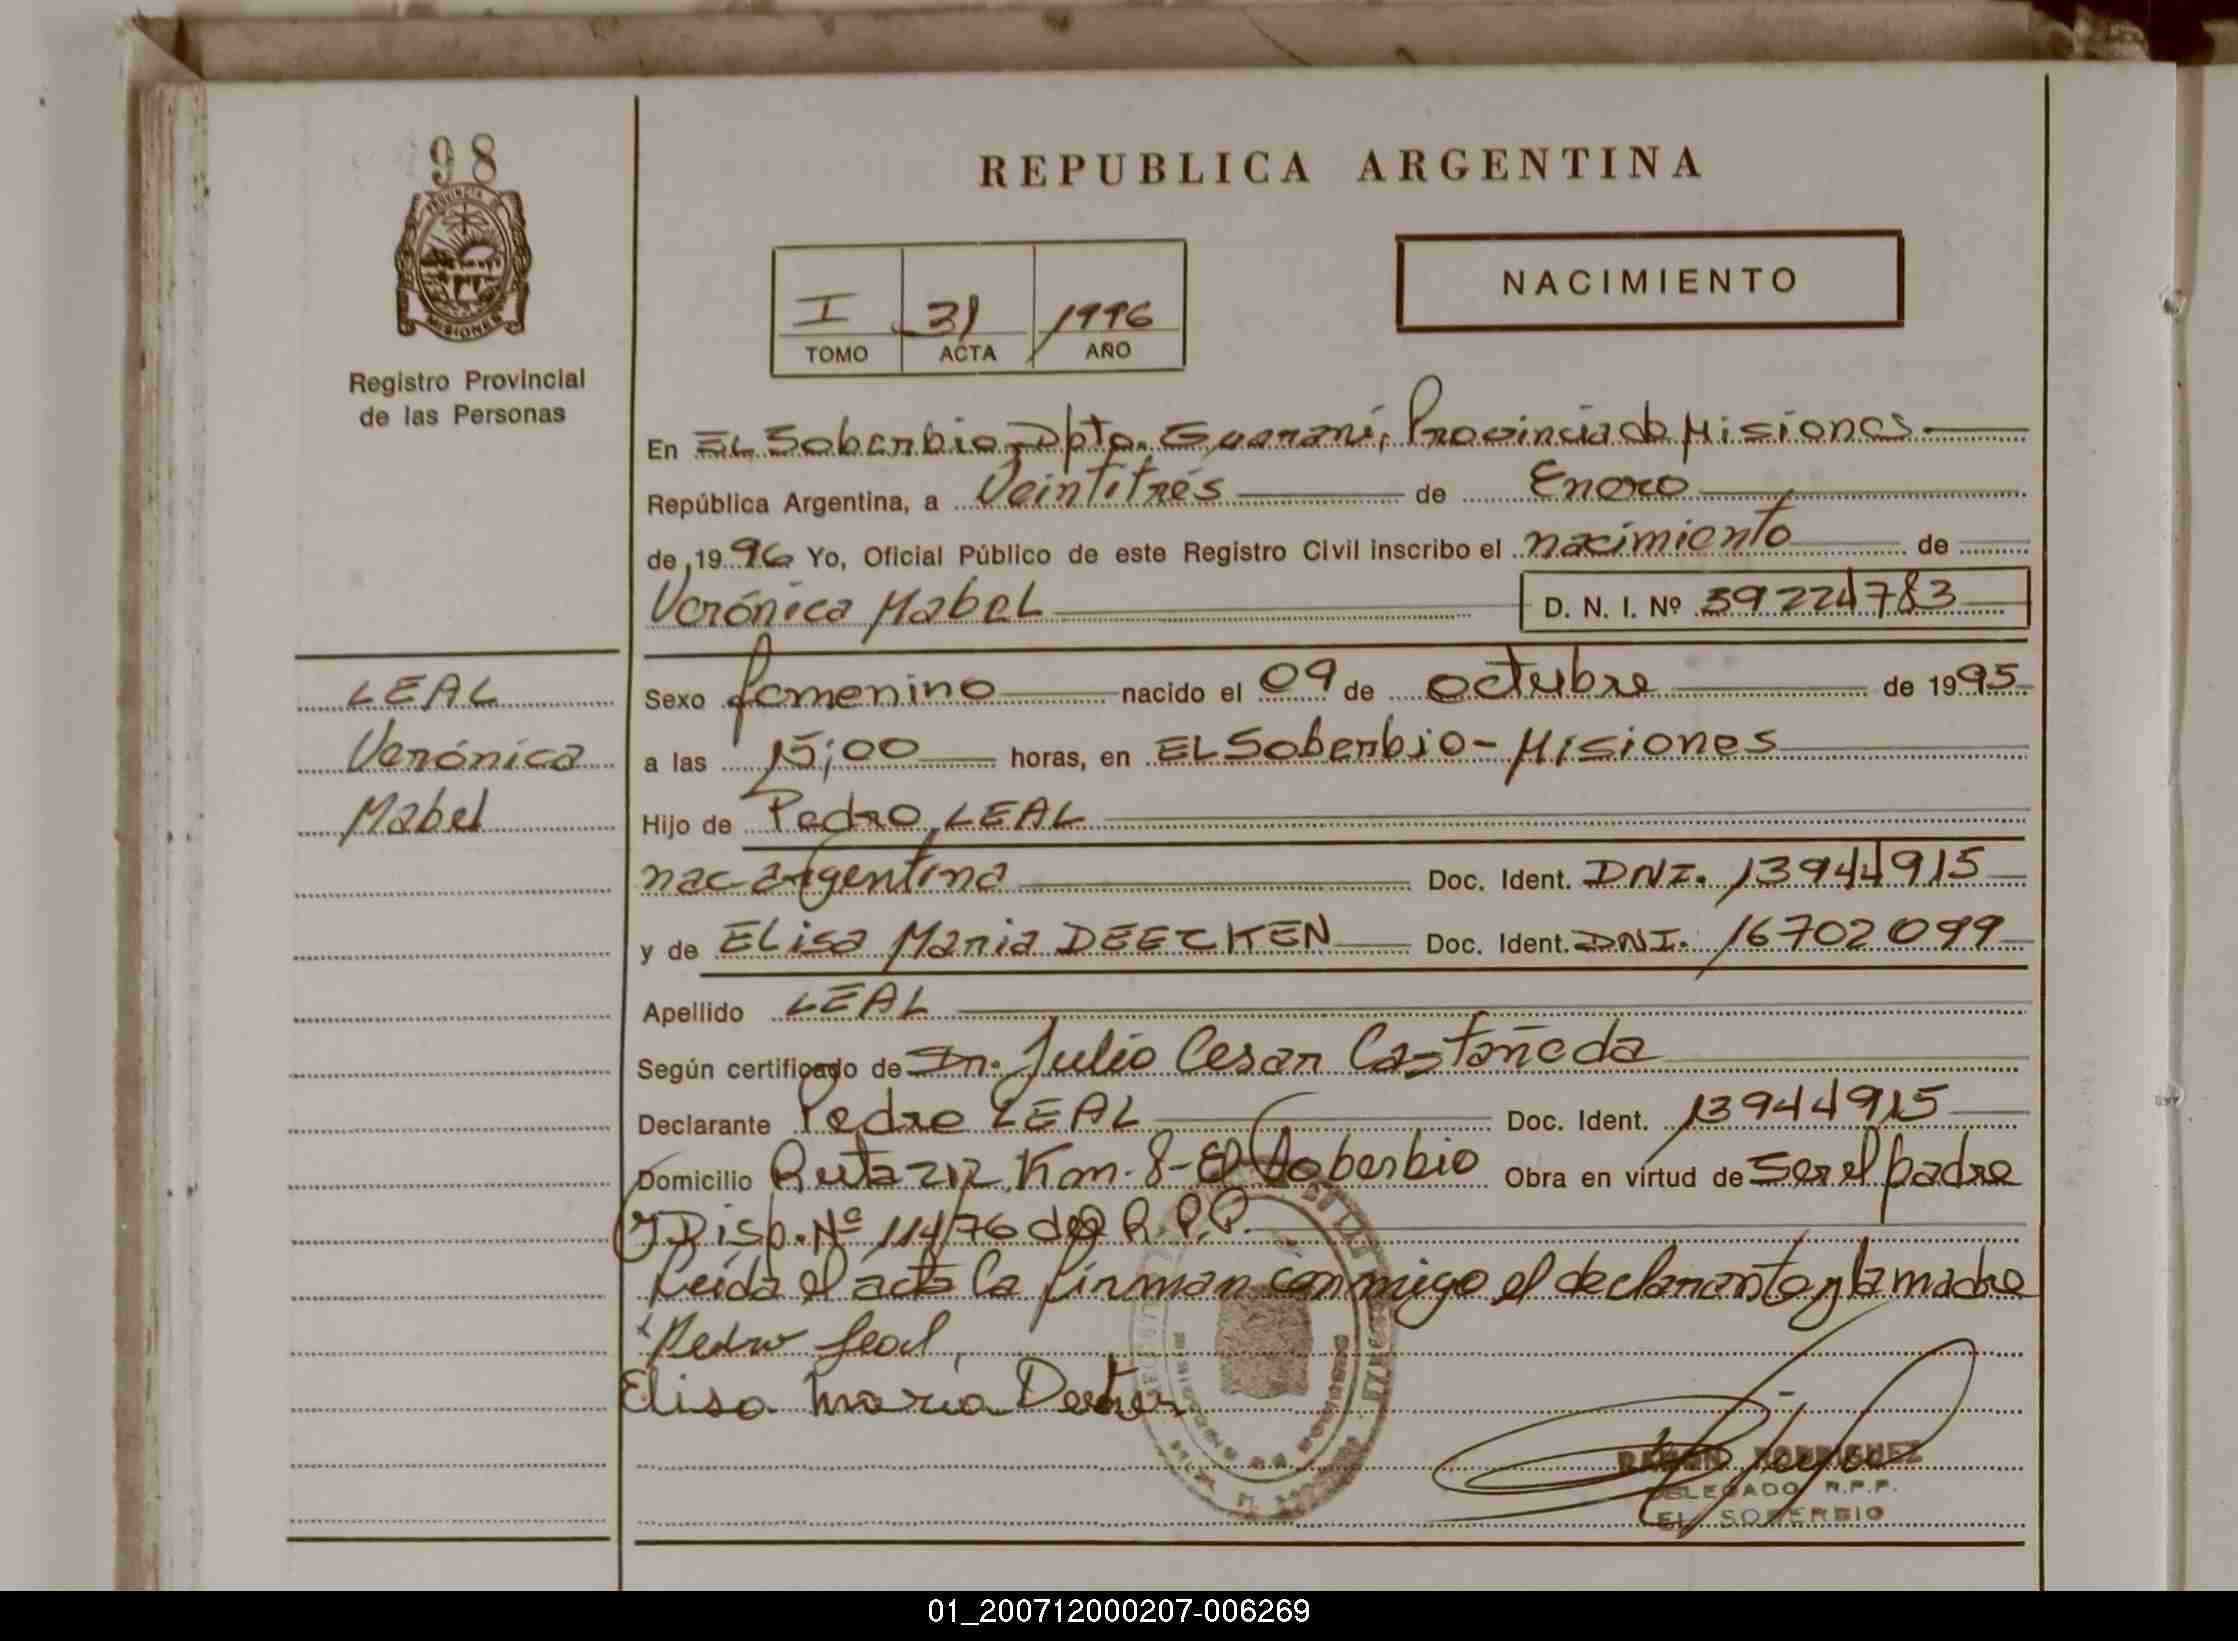 98
PROVINCIA DE
MISIONES
Registro Provincial
de las Personas
REPUBLICA ARGENTINA
I 31 1996
TOMO ACTA AÑO
NACIMIENTO
En EL Soberbio, Dpto. Guaraní, Provincia de Misiones
República Argentina, a Veintitrés de Enero
de 1996 Yo, Oficial Público de este Registro Civil inscribo el nacimiento de
Verónica Mabel D. N. I. Nº 39224783
LEAL
Verónica
Mabel
Sexo femenino nacido el 09 de octubre de 1995
a las 15;00 horas, en EL Soberbio - Misiones
Hijo de Pedro LEAL
nac argentina Doc. Ident. DNI. 13944915
y de Elisa Maria DEECKEN Doc. Ident. DNI. 16702099
Apellido LEAL
Según certificado de Dr. Julio Cesar Castañeda
Declarante Pedro LEAL Doc. Ident. 13944915
Domicilio Ruta 212 Km. 8 - El Soberbio Obra en virtud de ser el padre
y Disp. Nº 114/76 del R.P.P.
Leída el acta la firman conmigo el declarante y la madre
Pedro Leal
Elisa María
RAMON RODRIGUEZ
DELEGADO R.P.P.
EL SOBERBIO
01_200712000207-006269